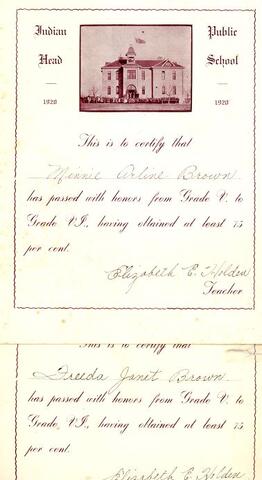 Indian Public
Head School
1920 1920
This is to certify that
Minnie Arline Brown
has passed with honors from Grade V. to
Grade VI., having obtained at least 75
per cent.
Elizabeth E. Holden
Teacher
This is to certify that
Freeda Janet Brown
has passed with honors from Grade V. to
Grade, VI., having obtained at least 75
per cent.
Elizabeth E. Holden